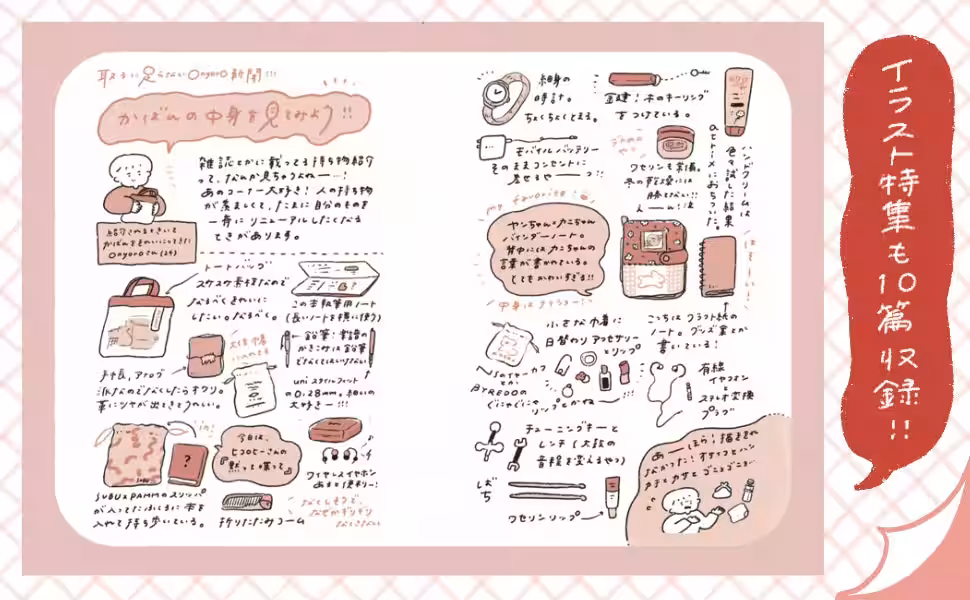 取るに足らないOnyoro新聞!!!
かばんの中身を見てみよう!!
雑誌とかに載ってる持ち物紹介
って、なんか見ちゃうよねー!
あのコーナー大好き! 人の持ち物
が羨ましくて、たまに自分のものを
一斉にリニューアルしたくなる
ときがあります。
紹介されるときいて
かばんをきれいにしてきた
Onyoroさん(24)
トートバッグ
スケスケ素材なので
なるべくきれいに
したい。なるべく。
この本執筆用ノート
(長いノートを横に使う)
手帳。アナログ
派なのでなくしたらオワリ。
革にツヤが出てきてうれしい。
鉛筆:楽譜の
かきこみは鉛筆
でなくてはいけない
uni スタイルフィット
の0.28mm。細いの
大好きー!!!
今日は、
ヒコロヒーさんの
『黙って喋って』
ワイヤレスイヤホン
あると便利!
SUBU×PAMMのスリッパ
が入ってたふくろに本を
入れて持ち歩いている。
折りたたみコーム
なくしそうで、
なぜかギリギリ
なくさない
細身の
時計。
ちょくちょくとまる。
金建!木のキーリング
をつけている。
モバイルバッテリー
そのままコンセントに
差せるやーーつ!!
ワセリンも常備。
冬の乾燥には
勝てない!!
ハンドクリームは
色々試した結果
atrixにおちついた。
my favorite!
ヤンちゃん×カニちゃん
バインダーノート。
背中にはカニちゃんの
言葉が書かれている。
とてもかわいすぎる!!
こっちはクラフト紙の
ノート。グッズ案とか
書いている!
小さな巾着に
日替わりアクセサリー
とリップ
N.のイヤーカフ
とか、
BYREDOの
ぐにゃぐにゃ
リップとかねー!!!
有線
イヤフォン+
ステレオ変換
プラグ
チューニングキーと
レンチ(太鼓の
音程を変えるやつ)
ばち
ワセリンリップ
イラスト特集も10篇収録!!